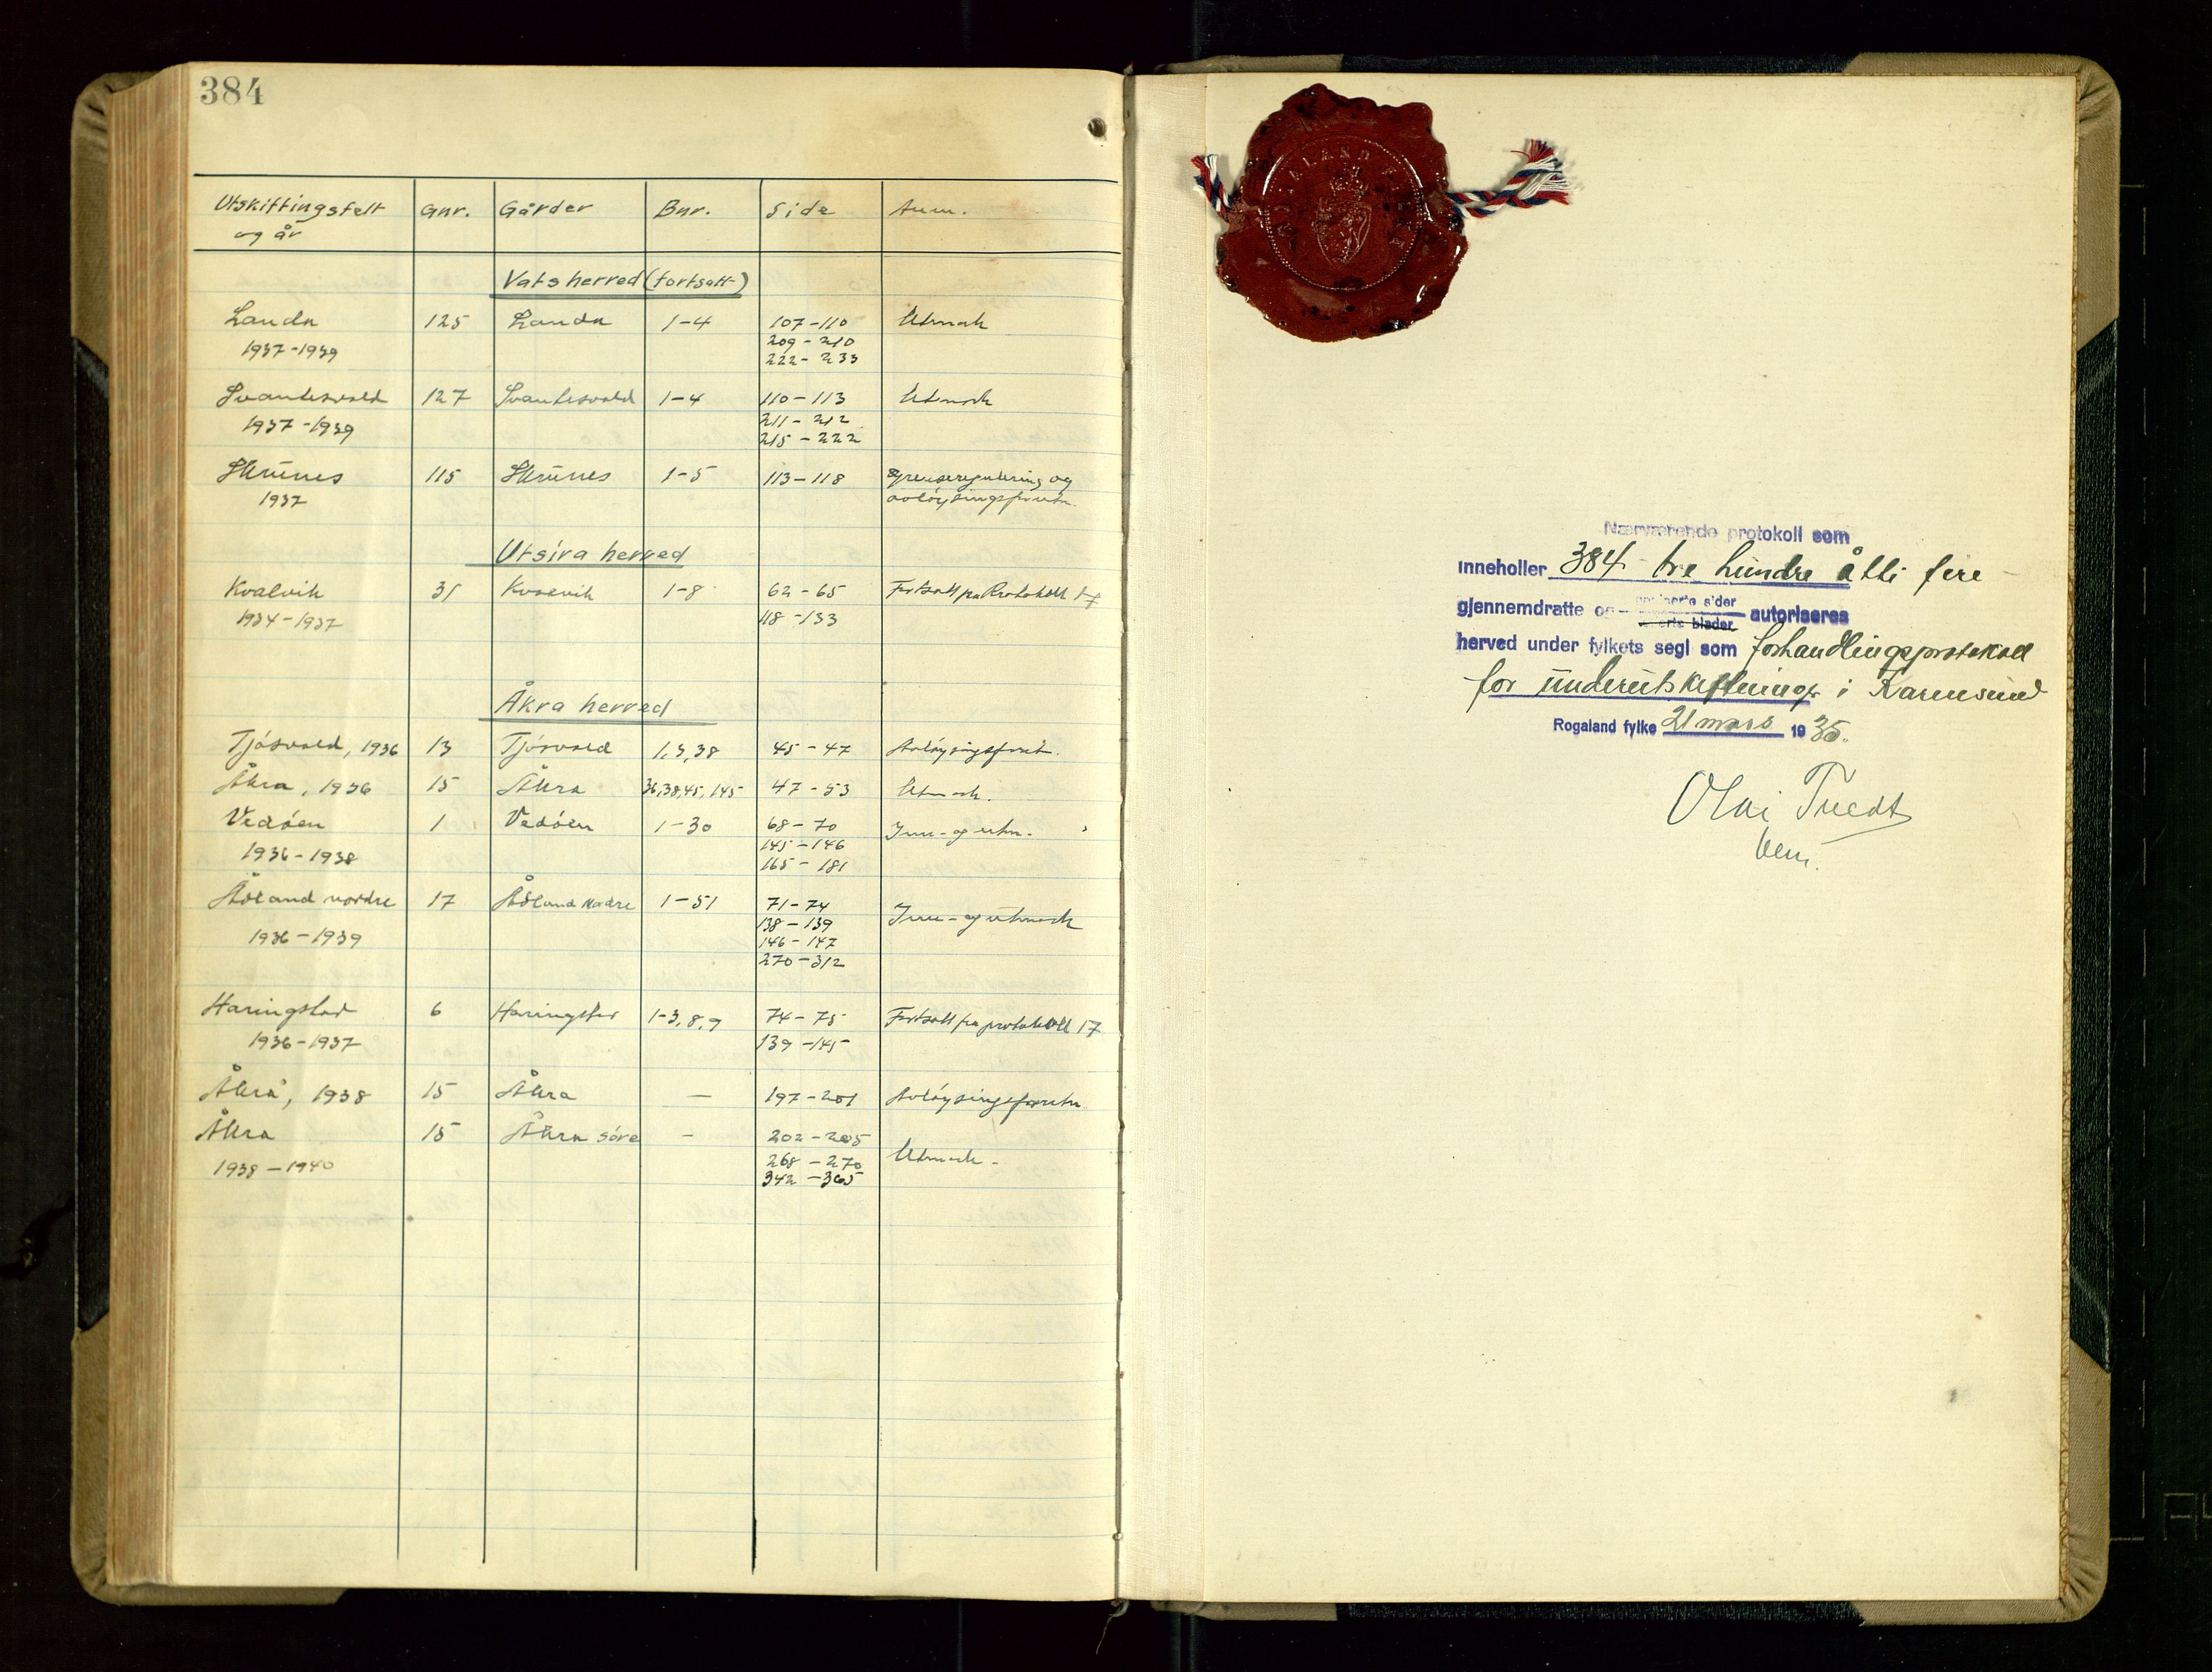 384
Utskiftingsfelt og år Gnr. Gårder Bnr. Side Anm.
Vats herred (fortsatt)
Landa 125 Landa 1-4 107-110 Utmark
1937-1939 209-210
222-233
Svandesvold 127 Svandesvold 1-4 110-113 Utmark
1937-1939 211-212
215-222
115 1-5 113-118 Grenseregulering og
1937 avløysingsforretn.
Utsira herred
Kvalvik 31 Kvalvik 1-8 62-65 Fortsatt fra Protokoll 17
1934-1937 118-133
Åkra herred
Tjøsvold, 1936 13 Tjøsvold 1,3,38 45-47 Avløysingsforretn.
Åkra, 1936 15 Åkra 36,38,45,145 47-53 Utmark.
Vedøen 1 Vedøen 1-30 68-70 Inn- og utm.
1936-1938 145-146
165-181
Ådland nordre 17 Ådland nordre 1-51 71-74 Inn- og utmark
1936-1939 138-139
146-147
270-312
Haringstad 6 Haringstad 1-3,8,9 74-75 Fortsatt fra protokoll 17
1936-1937 139-145
Åkra, 1938 15 Åkra — 197-201 Avløysingsforretn.
Åkra 15 Åkra søre - 202-205
1938-1940 268-270 Utmark.
342-365
ROGALAND FYLKE
Nærværende protokoll som
inneholder 384 - tre hundre åtti fire
gjennemdratte og paginerte sider
blader autoriseres
herved under fylkets segl som forhandlingsprotokoll
for underutskiftninger i Karmsund
Rogaland fylke 21 mars 1935.
Olai Tvedt